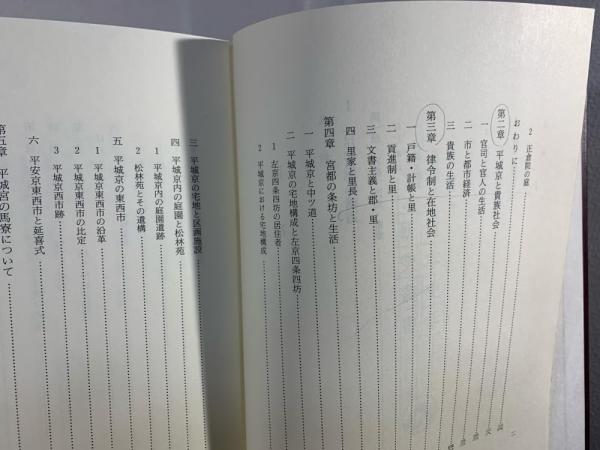 2 正倉院の庭
おわりに
第二章 平城京と貴族社会
一 官司と官人の生活
二 市と都市経済
三 貴族の生活
第三章 律令制と在地社会
一 戸籍・計帳と里
二 貢進制と里
三 文書主義と郡・里
四 里家と里長
第四章 宮都の条坊と生活
一 平城京と中ツ道
二 平城京の宅地構成と左京四条四坊
1 左京四条四坊の居住者
2 平城京における宅地構成
三 平城京の宅地と区画施設
四 平城京内の庭園と松林苑
1 平城京内の庭園遺跡
2 松林苑とその遺構
五 平城京の東西市
1 平城京東西市の沿革
2 平城京東西市の比定
3 平城京西市跡
六 平安京東西市と延喜式
第五章 平城宮の馬寮について